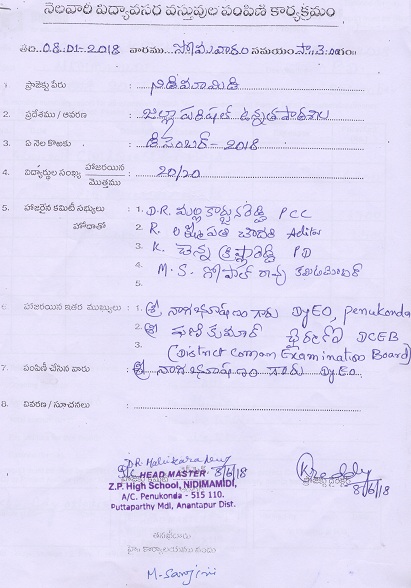 నెలవారీ విద్యావసర వస్తువుల పంపిణీ కార్యక్రమం
తేది..08.01-2018 వారము...సోమవారం సమయం
1. ప్రాజెక్టు పేరు : నిడిమామిడి
2. ప్రదేశము / ఆవరణ : జిల్లా పరిషత్ ఉన్నత పాఠశాల
3. ఏ నెల కొఱకు : డిసెంబర్ - 2018
4. విద్యార్థుల సంఖ్య హాజరయిన / మొత్తము : 20/20
5. హాజరైన కమిటీ సభ్యులు : 1. D.R. మల్లికార్జునరెడ్డి PCC
హోదాతో 2. R. లక్ష్మీపతి చౌదరి Aditor
3. K. చెన్న క్రిష్ణారెడ్డి PD
4. M.S. గోపాల్ రావు
5.
6. హాజరయిన ఇతర ముఖ్యులు : 1. శ్రీ నాగభూషణం గారు DyEO, penukonda
2. శ్రీ ఫణికుమార్ ఛైర్మన్ DCEB
3. (District Comon Examination Board)
7. పంపిణీ చేసిన వారు : శ్రీ నాగభూషణం గారు DyEO
8. వివరణ / సూచనలు :
D.R. Mallikarjuna Reddy
HEAD MASTER 8/6/18
Z.P. High School, NIDIMAMIDI,
A/C. Penukonda - 515 110.
Puttaparthy Mdl, Anantapur Dist.
K Reddy
ప్రాజెక్టు డైరెక్టర్
8/6/18
తహశీల్దారు
M-Sanjini